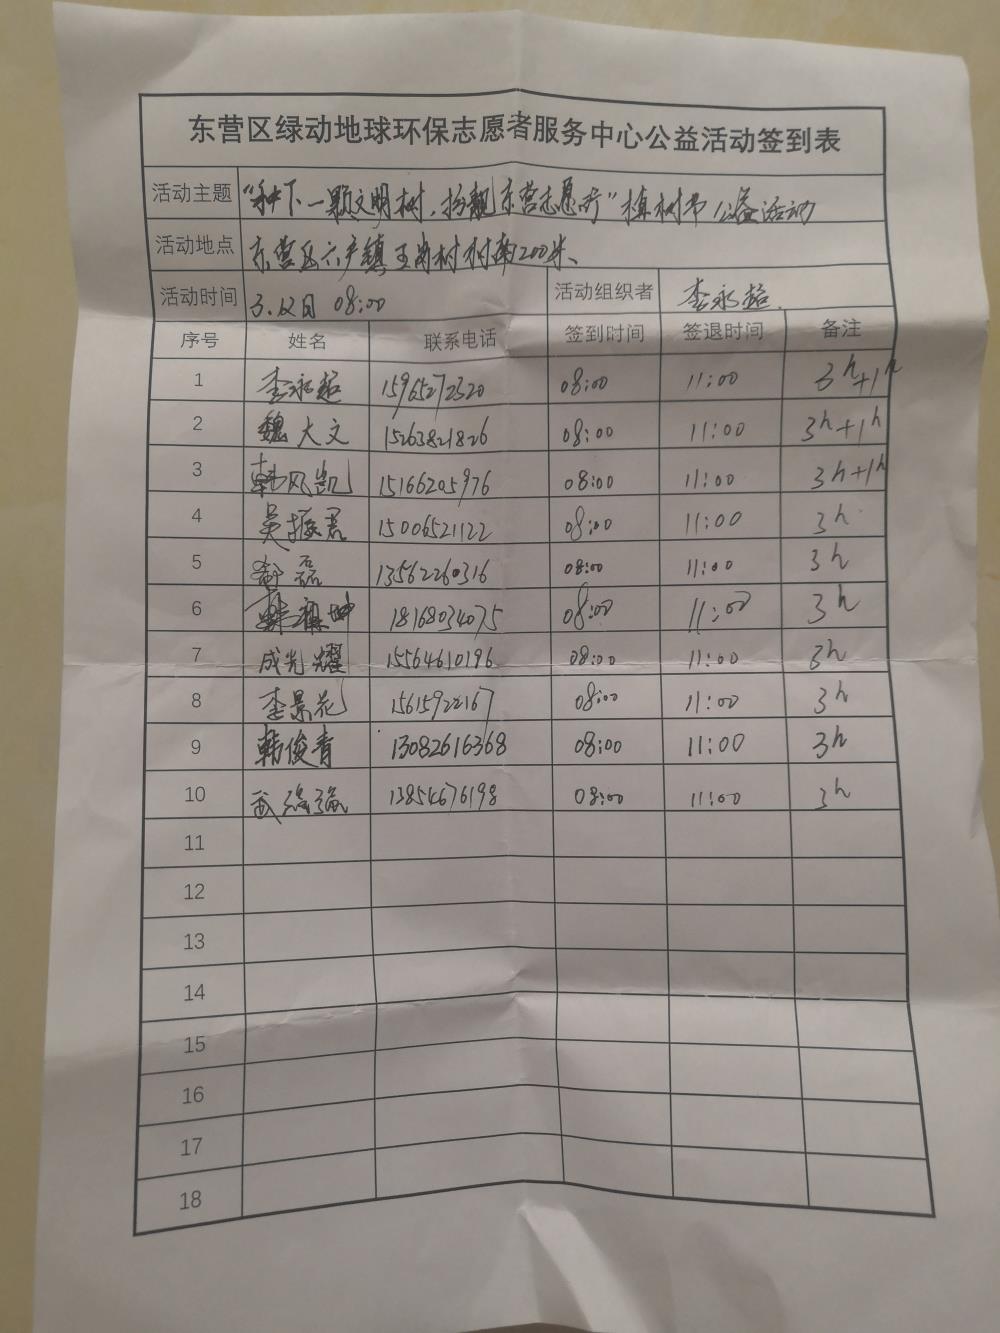 东营区绿动地球环保志愿者服务中心公益活动签到表
活动主题 “种下一颗文明树，扮靓东营志愿行”植树节公益活动
活动地点 东营区六户镇王岗村村南200米、
活动时间 3.12日 08:00 活动组织者 李永超.
序号 姓名 联系电话 签到时间 签退时间 备注
1 李永超 15965272520 08:00 11:00 3h+1h
2 魏大文 15263821826 08:00 11:00 3h+1h
3 韩风凯 15166205976 08:00 11:00 3h+1h
4 吴振君 15006521122 08:00 11:00 3h
5 磊 13562260316 08:00 11:00 3h
6 韩 坤 18168034075 08:00 11:00 3h
7 成光耀 15564610196 08:00 11:00 3h
8 李景花 15615922167 08:00 11:00 3h
9 韩俊青 13082616368 08:00 11:00 3h
10 武 13854676198 08:00 11:00 3h
11
12
13
14
15
16
17
18